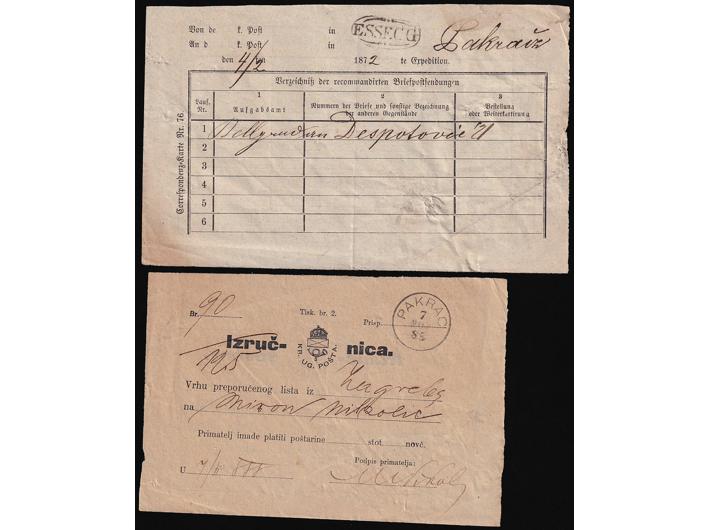 Von de k. Post in ESSEGG Pakratz
An d k. Post in
den 4/2 ten 1872 te Expedition.
Verzeichniß der recommandirten Briefpostsendungen
1 2 3
Lauf. Nr. Aufgabsamt Nummern der Briefe und sonstige Bezeichnung der anderen Gegenstände Bestellung oder Weiterkartirung
1 Bellgrad an Despotović
2
3
4
5
6
Correspondenz-Karte Nr. 76
Br. 90 Tisk. br. 2. Prisp. PAKRAC
7
85
Izruč- nica.
KR. UG. POŠTA.
195
Vrhu preporučenog lista iz Zagreba
na Miron Nikolić
Primatelj imade platiti poštarine stot. novč.
Podpis primatelja:
U